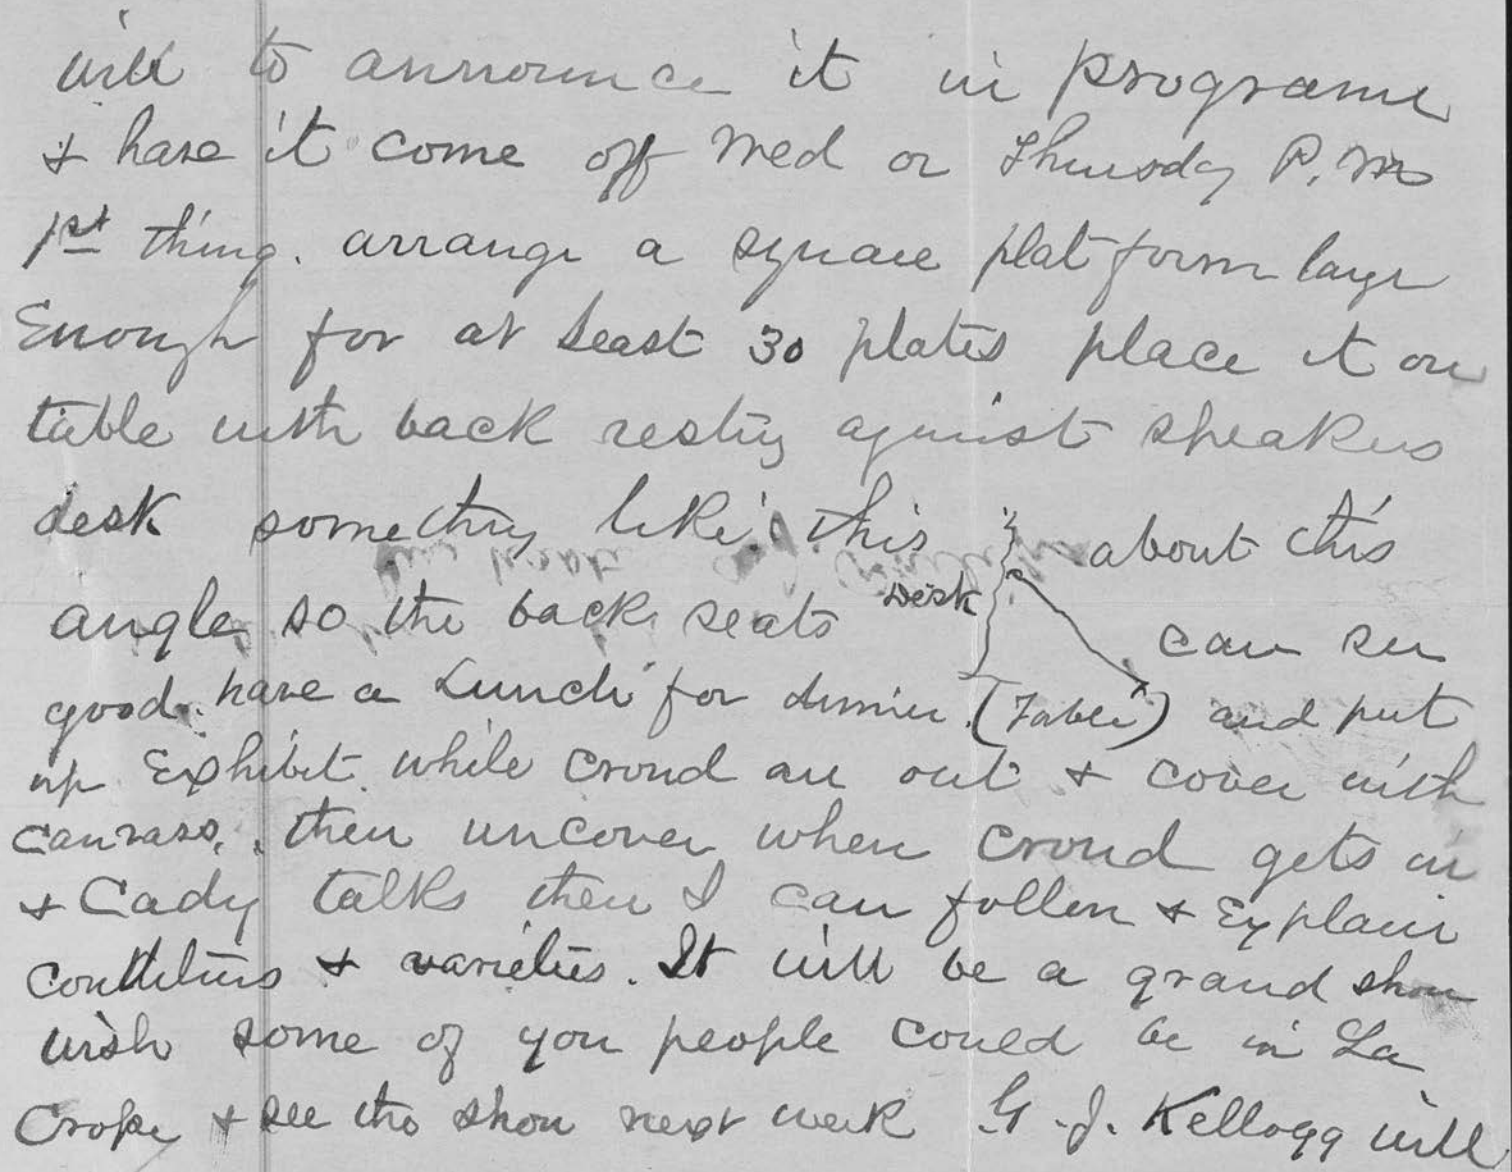 will to announce it in programe
& have it come off Wed or Thursday P.M
1st thing. arrange a square platform large
Enough for at least 30 plates place it on
table with back resting against speakers
desk something like this about this
angle so the back seats Desk can see
good. have a Lunch for dinner (Table) and put
up Exhibit while crowd are out & cover with
canvass, then uncover when crowd gets in
& Cady talks then I can follow & Explain
& varieties. It will be a grand show
wish some of you people could be in La
Crosse & see the show next week G. J. Kellogg will